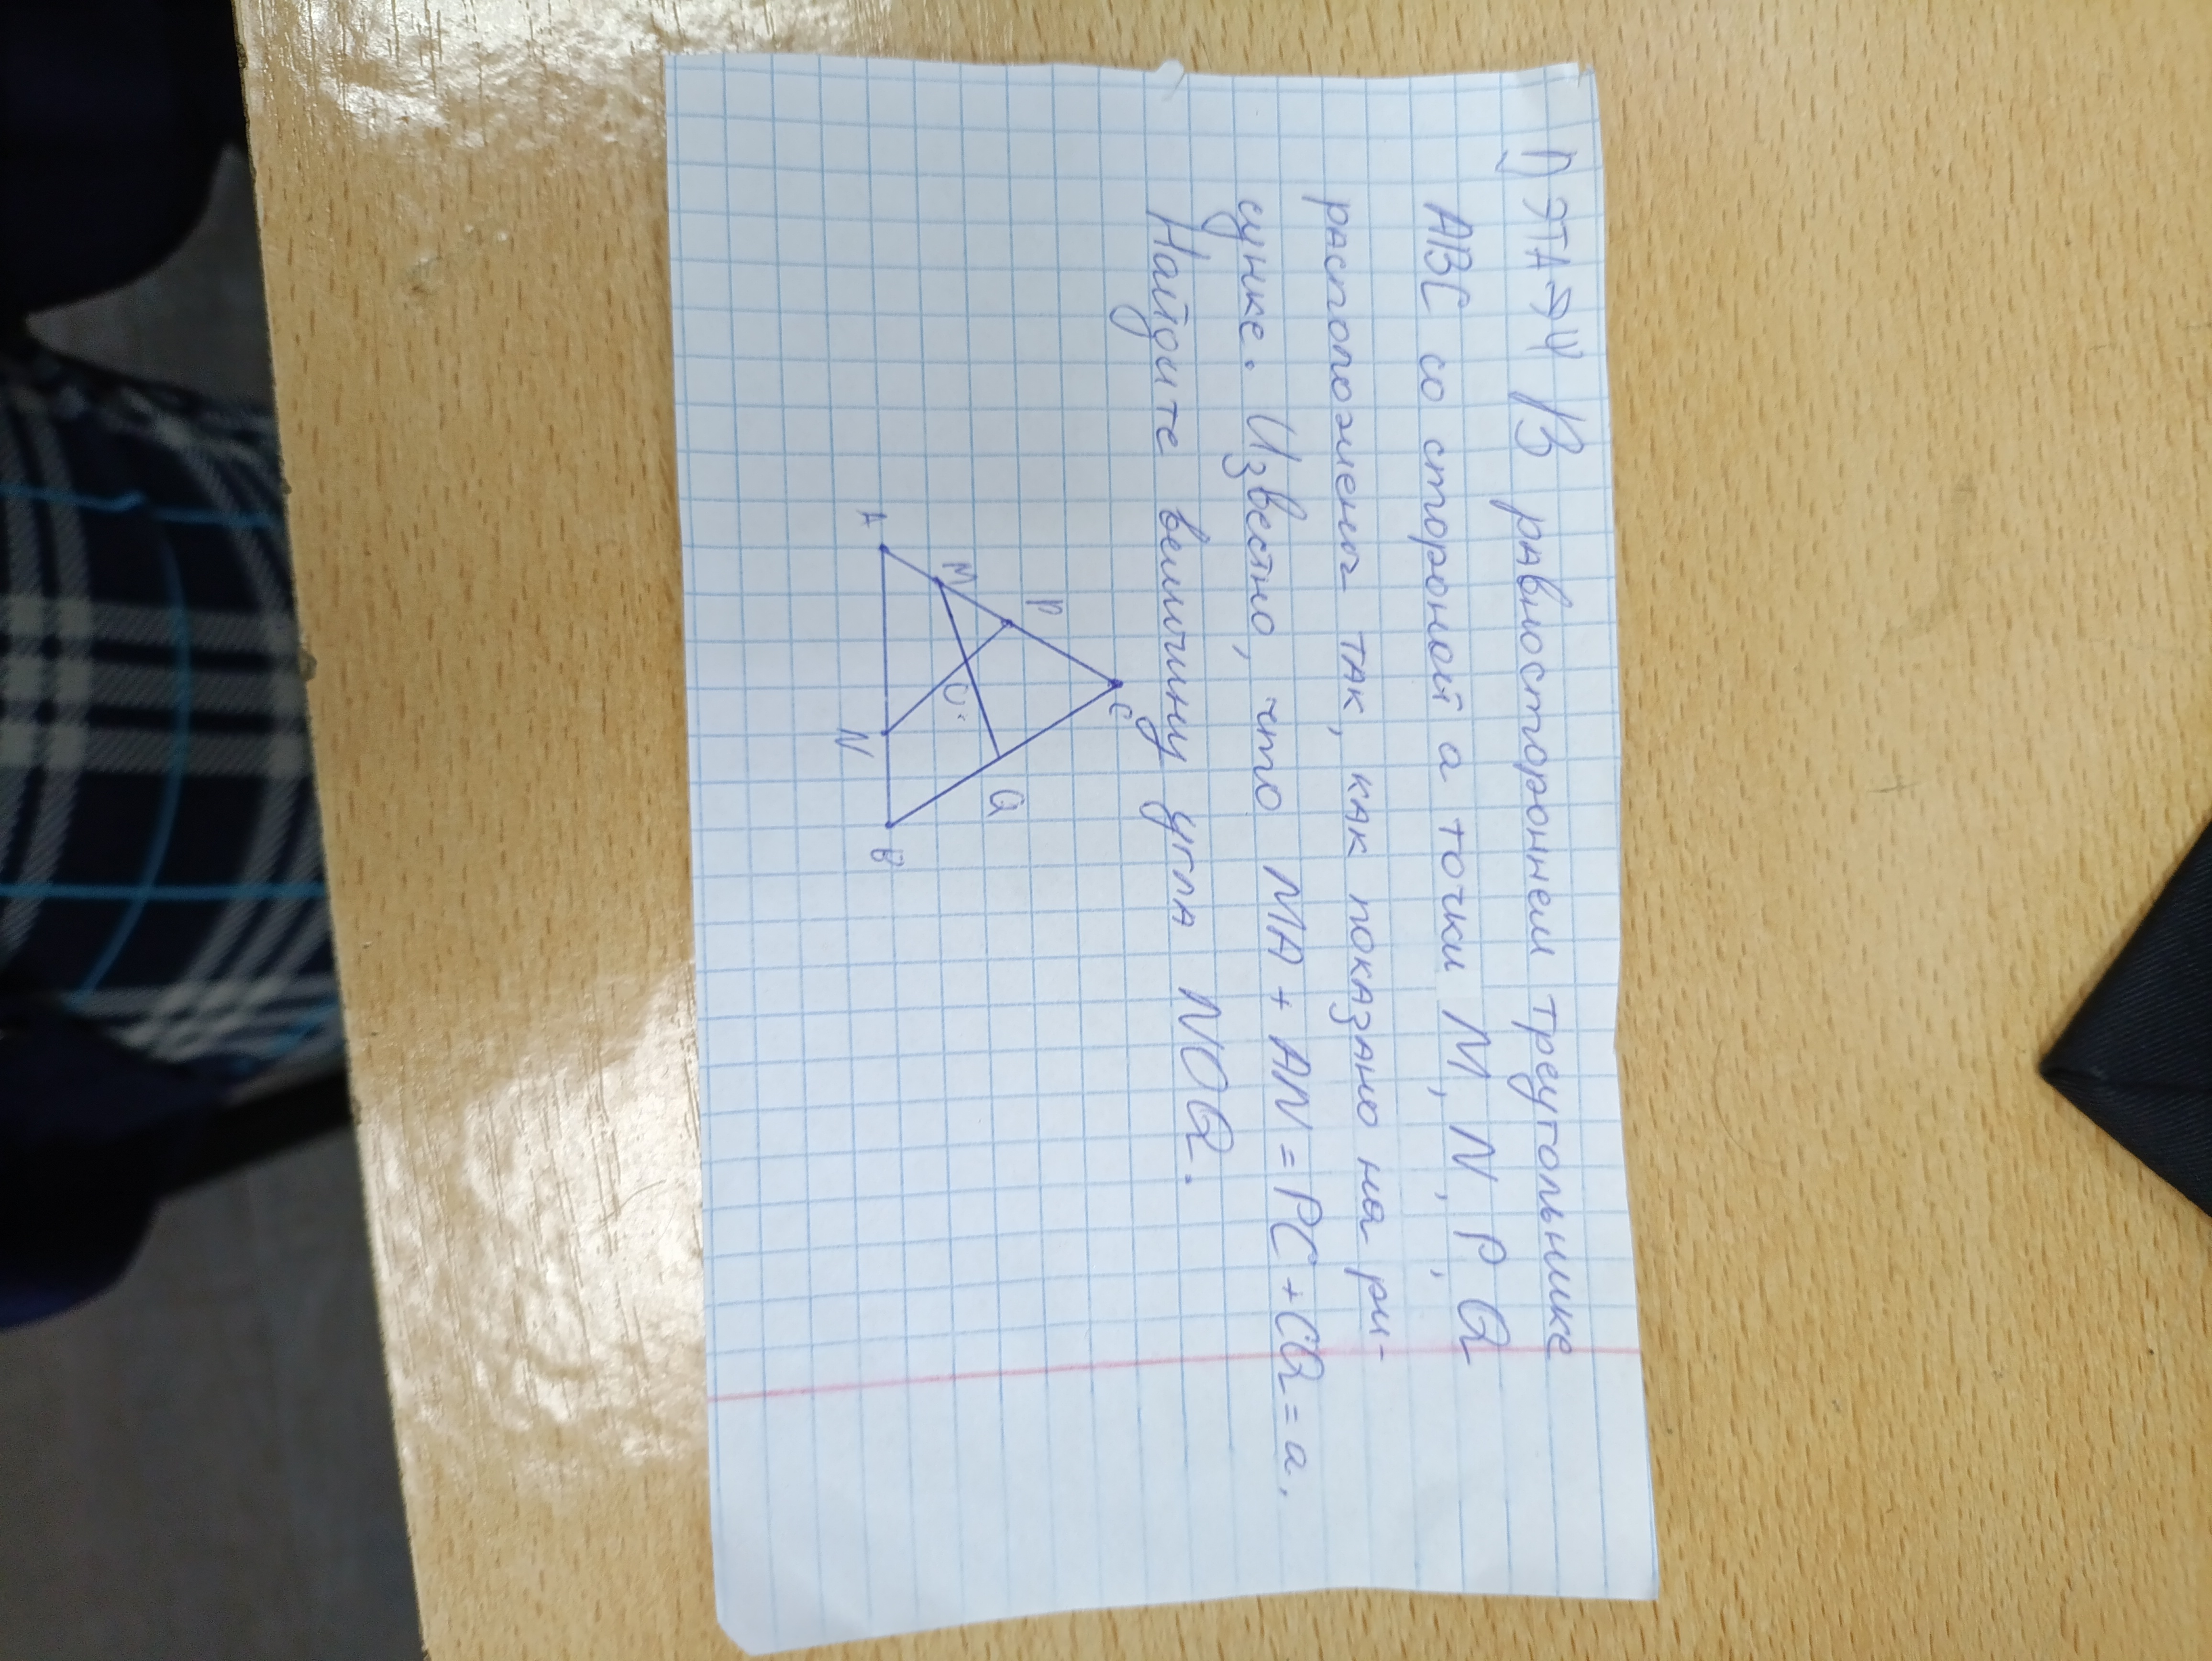 1) ЭТАЭЧ В равностороннем треугольнике
ABC со стороной a точки M, N, P, Q
расположены так, как показано на ри-
сунке. Известно, что MA + AN = PC + CQ = a.
Найдите величину угла NOQ.
C
P
M
Q
O
A
N
B